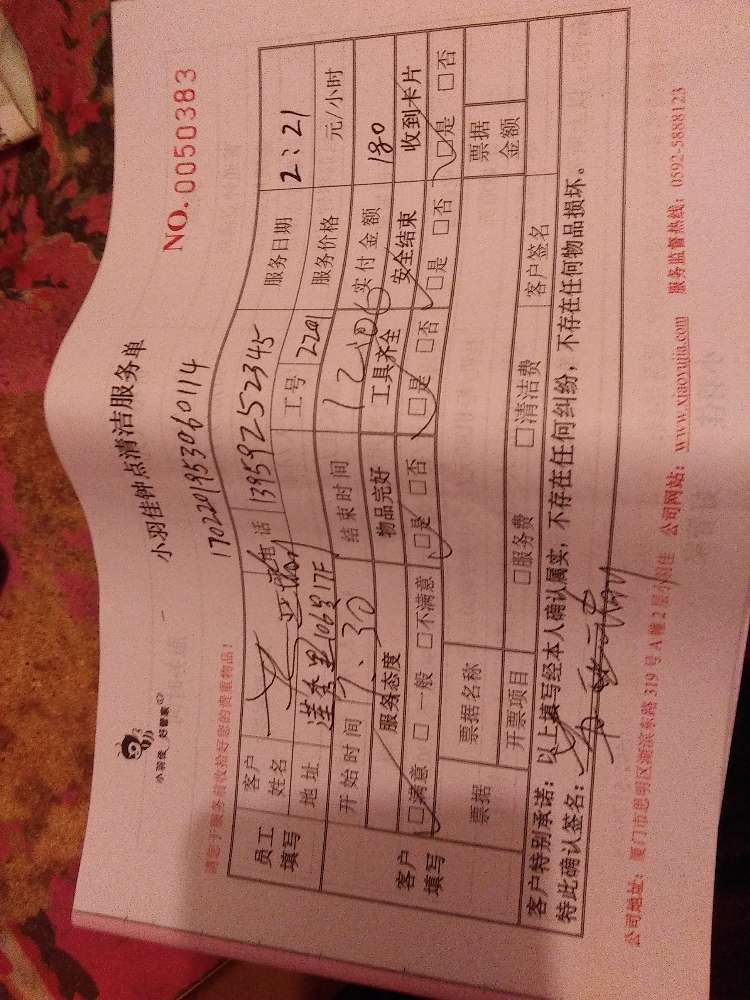 小羽佳 好管家
小羽佳钟点清洁服务单
NO. 0050383
1702201953060114
请您于服务前收拾好您的贵重物品!
员工填写
客户姓名 电话 13959252345 服务日期 2:21
地址 莲秀里106号17F 工号 2201 服务价格 元/小时
开始时间 7:30 结束时间 12:00 实付金额 180
客户填写
服务态度 物品完好 工具齐全 安全结束 收到卡片
□满意 □一般 □不满意 □是 □否 □是 □否 □是 □否 □是 □否
票据 票据名称 票据金额
开票项目 □服务费 □清洁费 客户签名
客户特别承诺:以上填写经本人确认属实,不存在任何纠纷,不存在任何物品损坏。
特此确认签名:
公司地址:厦门市思明区湖滨东路319号A幢2层小羽佳 公司网站:www.xiaoyujia.com 服务监督热线:0592-5888123